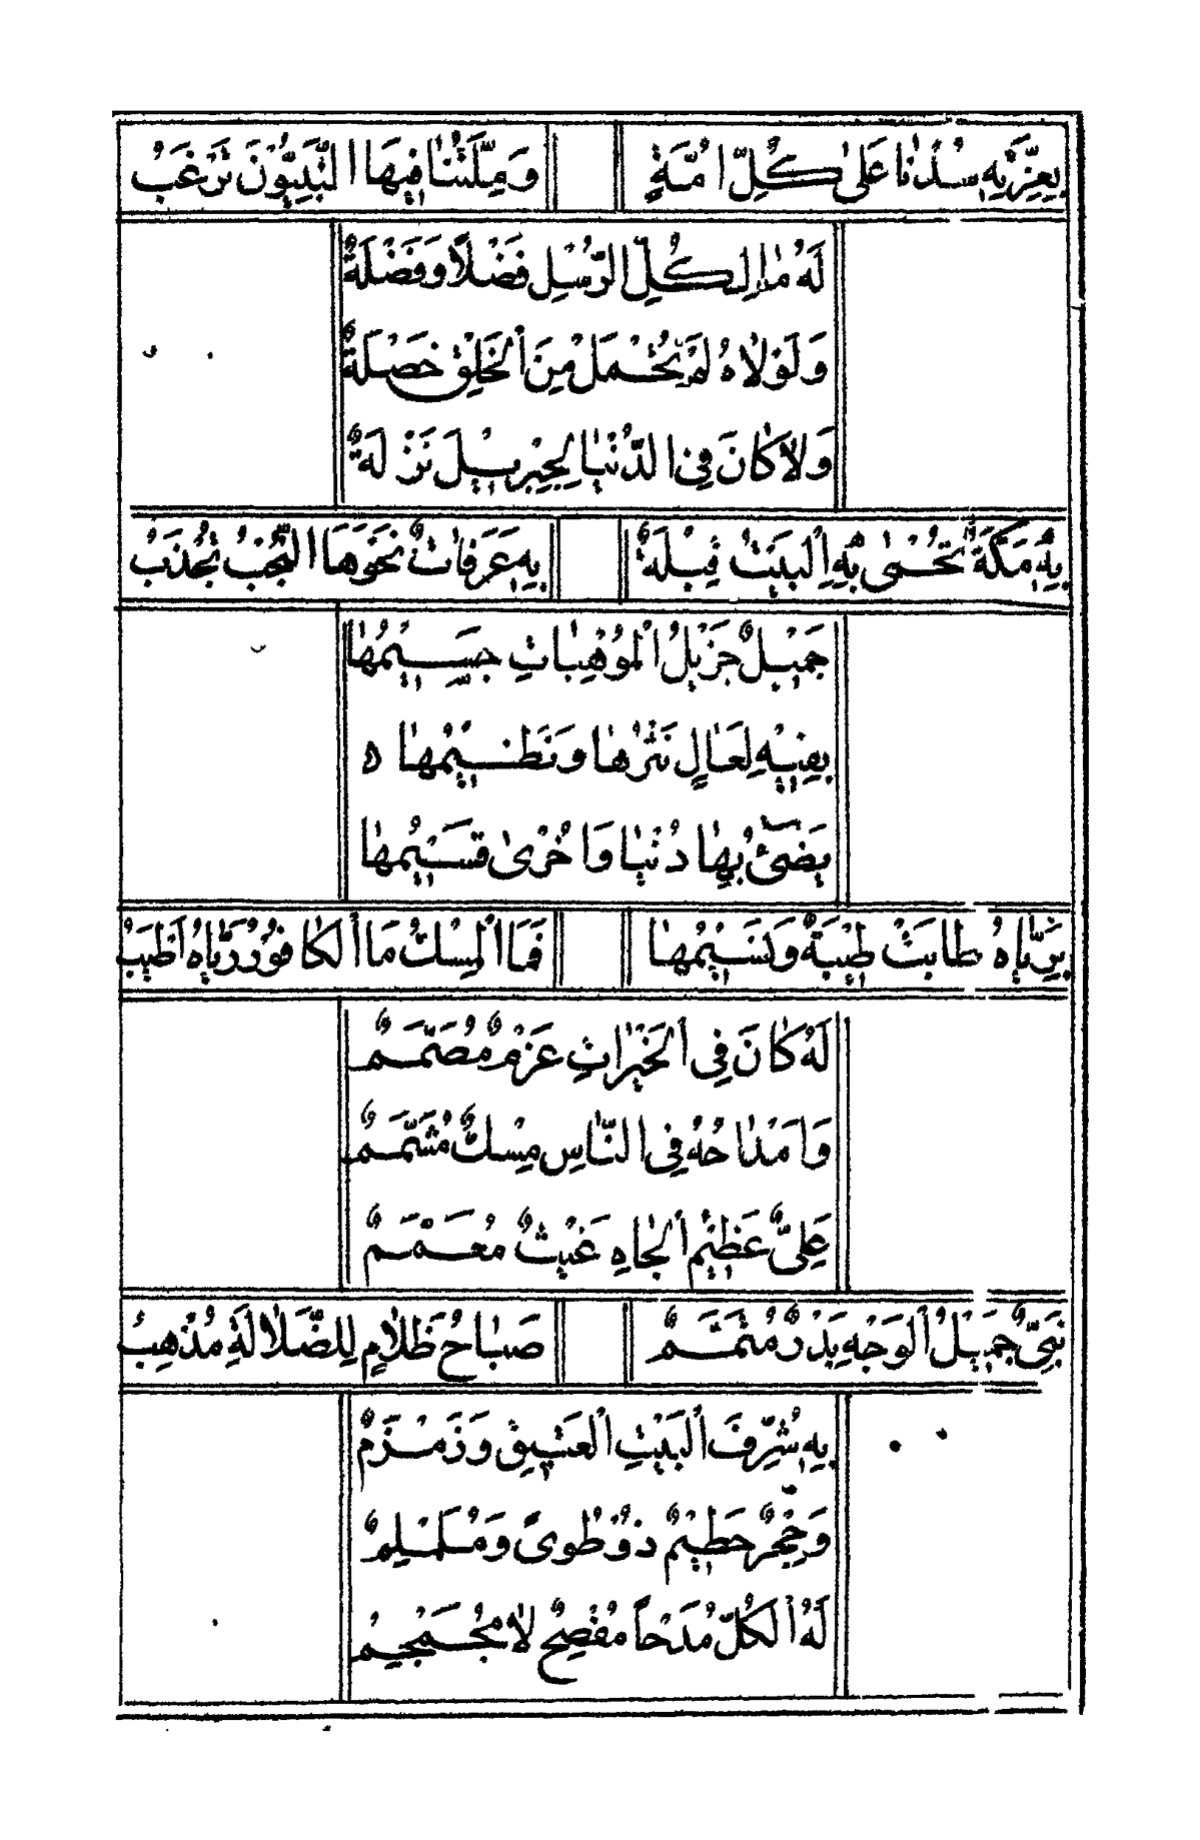 بِعِزَّتِهِ سُدْنَا عَلَى كُلِّ اُمَّةٍ وَمِلَّتُنَا فِيهَا النَّبِيُّونَ تَرْغَبُ
لَهُ مَا لِكُلِّ الرُّسْلِ فَضْلًا وَفَضْلَةٌ
وَلَوْلَاهُ لَمْ تُحْمَلْ مِنَ الْخَلْقِ خَصْلَةٌ
وَلَا كَانَ فِي الدُّنْيَا لِجِبْرِيلَ نَزْلَةٌ
بِهِ مَكَّةٌ تُحْمَى بِهِ الْبَيْتُ قِبْلَةٌ بِهِ عَرَفَاتٌ نَحْوَهَا النُّجُبُ تُجْذَبُ
جَمِيلٌ جَزِيلُ الْمَوْهِبَاتِ جَسِيمُهَا
بِفِيهِ لَعَالٍ نَثْرُهَا وَنَظِيمُهَا ه
يَضِئُ بِهَا دُنْيَا وَاُخْرَى قَسِيمُهَا
بِرَيَّاهُ طَابَتْ طِيبَةٌ وَنَسِيمُهَا فَمَا الْمِسْكُ مَا الْكَافُورُ رَيَّاهُ اَطْيَبُ
لَهُ كَانَ فِي الْخَيْرَاتِ عَزْمٌ مُصَمَّمٌ
وَاَمْدَاحُهُ فِي النَّاسِ مِسْكٌ مُشَمَّمٌ
عَلِيٌّ عَظِيمُ الْجَاهِ غَيْثٌ مُعَمَّمٌ
نَبِيٌّ جَمِيلُ الْوَجْهِ بَدْرٌ مُتَمَّمٌ صَبَاحُ ظَلَامٍ لِلضَّلَالَةِ مُذْهِبُ
بِهِ شُرِّفَ الْبَيْتِ الْعَتِيقِ وَزَمْزَمٌ
وَحِجْرٌ حَطِيمٌ ذُو طُوًى وَمُلَمْلَمٌ
لَهُ الْكُلُّ مُدَّحًا مُفْصِحٌ لَا مُجَمْجِمُ